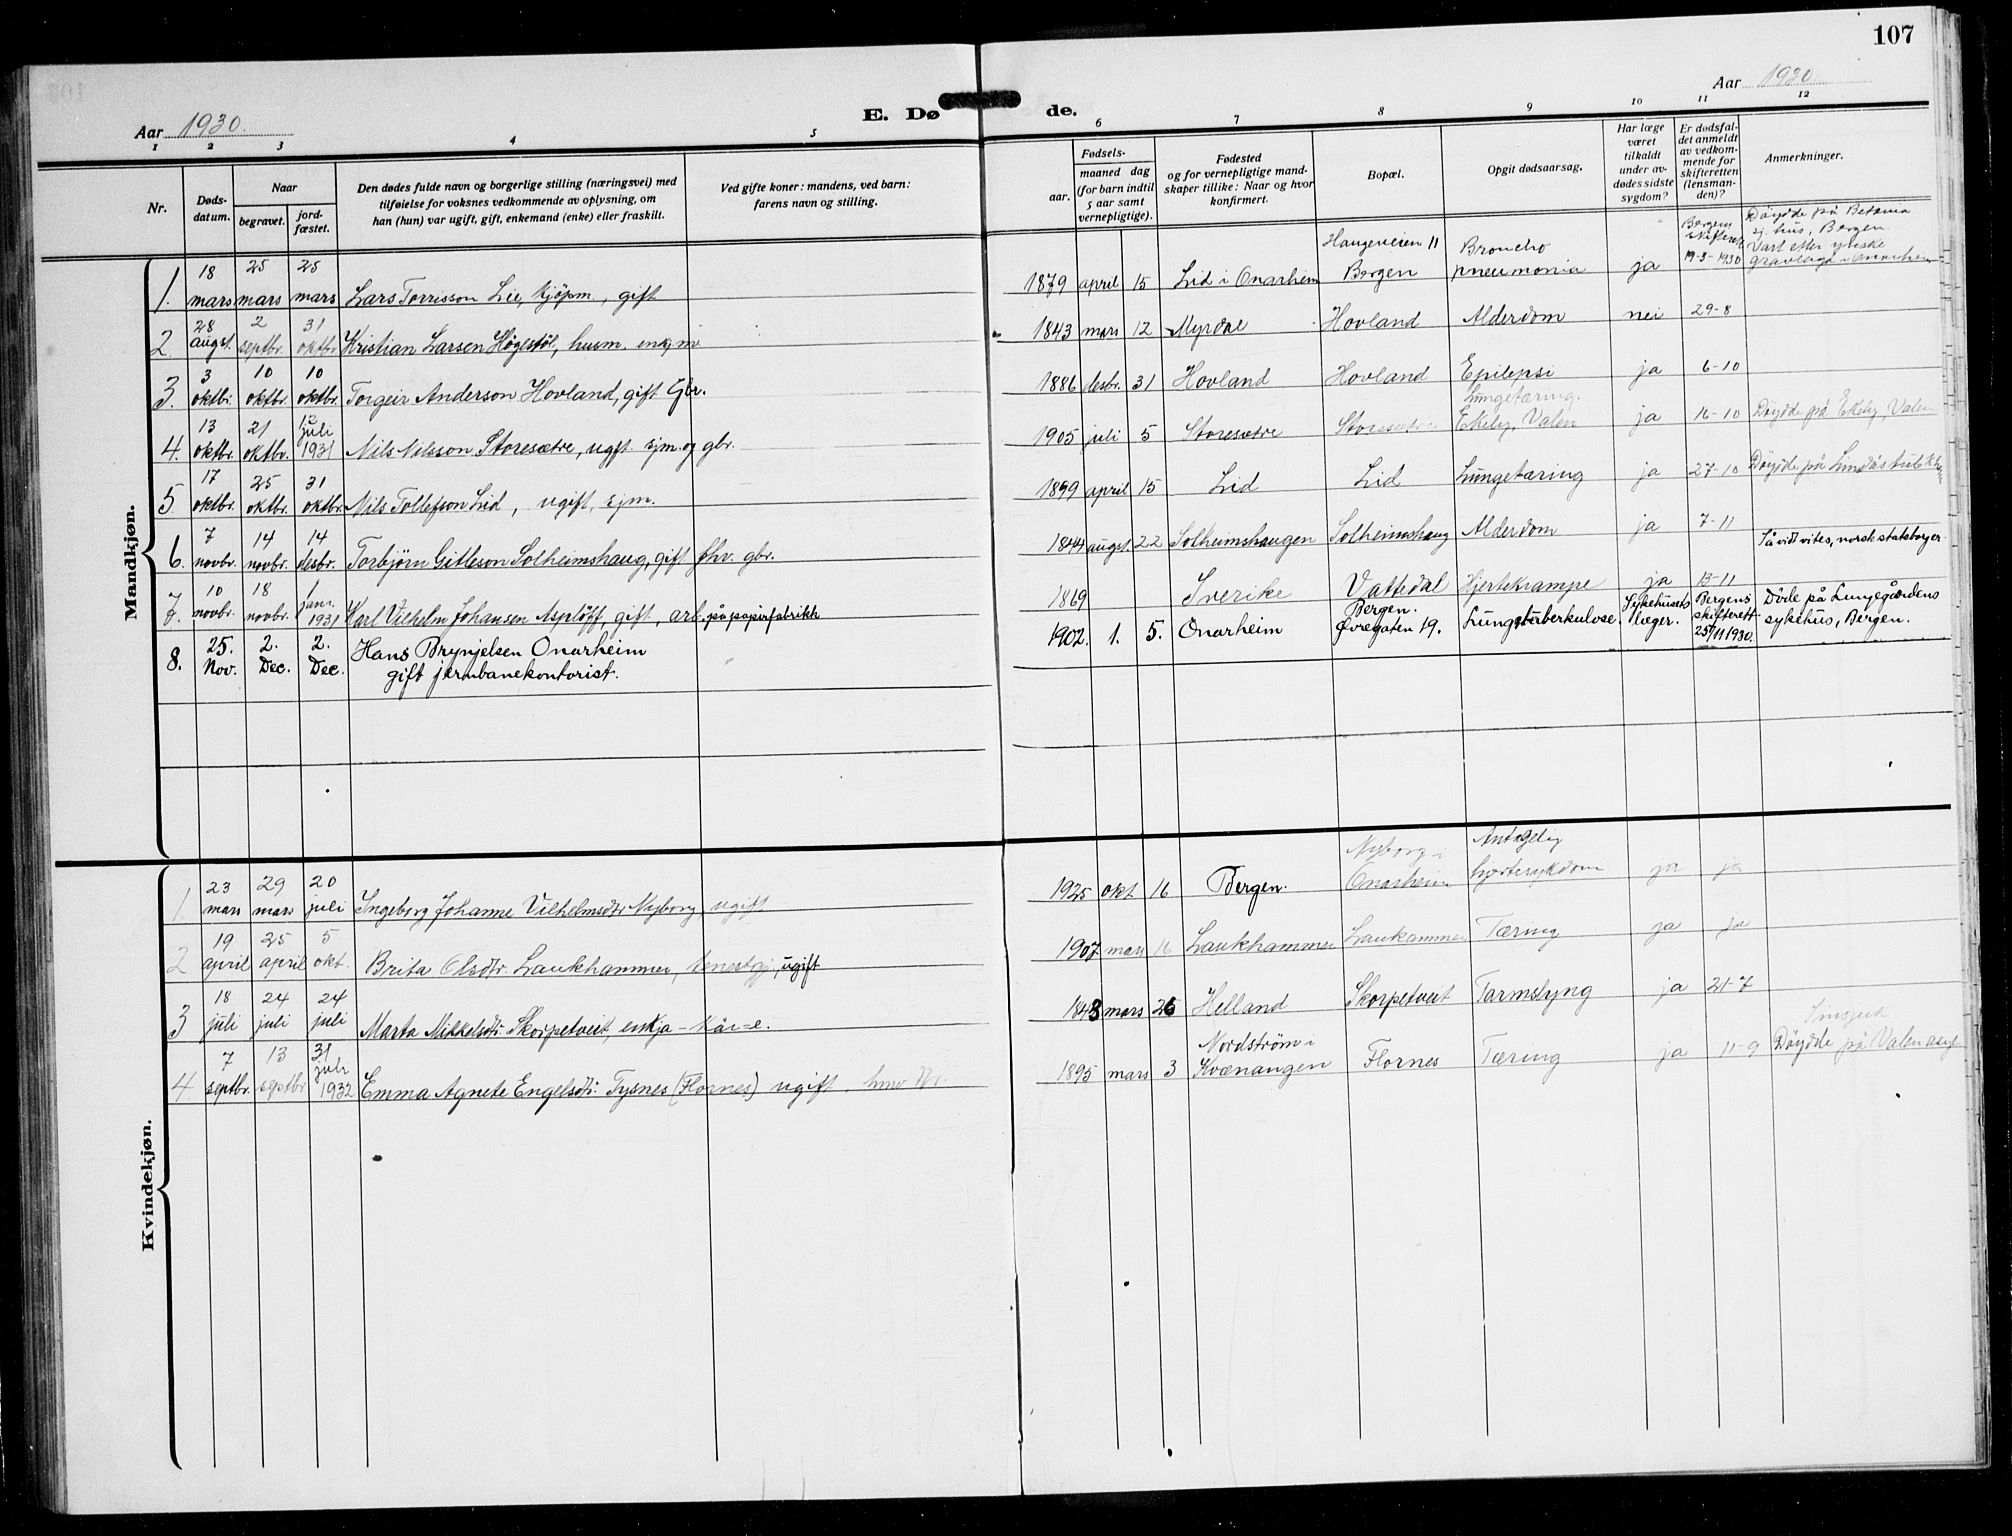 107
Aar 1930.
E. Døde.
Aar 1930
1 2 3 4 5 6 7 8 9 10 11 12
Nr.
Døds-
datum.
Naar
begravet.
jord-
fæstet.
Den dødes fulde navn og borgerlige stilling (næringsvei) med
tilføielse for voksnes vedkommende av oplysning, om
han (hun) var ugift, gift, enkemand (enke) eller fraskilt.
Ved gifte koner: mandens, ved barn:
farens navn og stilling.
Fødsels-
aar.
maaned dag
(for barn indtil
5 aar samt
vernepligtige).
Fødested
og for vernepligtige mand-
skaper tillike: Naar og hvor
konfirmert.
Bopæl.
Opgit dødsaarsag.
Har læge
været
tilkaldt
under av-
dødes sidste
sygdom?
Er dødsfal-
det anmeldt
av vedkom-
mende for
skifteretten
(lensman-
den)?
Anmerkninger.
Mandkjøn.
1. 18 mars 25 mars 25 mars Lars Torrisson Lie, kjöpm., gift 1879 april 15 Lid i Onarheim Haugeveien 11 Bergen Broncho pneumonia ja Bergens skifterett 19-3-1930 Döydde på Betania sj. hus, Bergen. Vart etter ynske gravlagd i Onarheim
2 28 augst. 2 septbr. 31 oktbr. Kristian Larsen Högestöl, husm. enkjm 1843 mars 12 Myrdal Hovland Alderdom nei 29-8
3. 3 oktbr. 10 oktbr. 10 oktbr. Torgeir Anderson Hovland, gift Gbr. 1886 desbr. 31 Hovland Hovland Epilepsi ja 6-10
4. 13 oktbr. 21 oktbr. 12 juli 1931 Nils Nilsson Storesætre, ugift. sjm. og gbr. 1905 juli 5 Storesætre Storesætre Lungetæring. Ekely, Valen ja 16-10 Döydde på Ekely, Valen
5. 17 oktbr. 25 oktbr. 31 oktbr. Nils Tollefson Lid, ugift, sjm. 1899 april 15 Lid Lid Lungetæring ja 27-10 Döydde på Lindås tub.
6. 7 novbr. 14 novbr. 14 desbr. Torbjörn Gitleson Solheimshaug, gift fhv. gbr. 1844 augst. 22 Solheimshaugen Solheimshaug Alderdom ja 7-11
7. 10 novbr. 18 novbr. 1 janr. 1931 Karl Vilhelm Johansen Asplöff, gift, arb. på papirfabrikk 1869 Sverike Vattedal Hjertekrampe ja 13-11 Så vidt vites, norsk statsborger.
8. 25. Nov. 2. Dec. 2. Dec. Hans Brynjelsen Onarheim gift jernbanekontorist. 1902. 1. 5. Onarheim Bergen. Øvregaten 19. Lungetuberkulose. Sykehusets læger. Bergens skifterett 25/11 1930. Döde på Lungegårdens sykehus, Bergen.
Kvindekjøn.
1. 23 mars 29 mars 20 juli Ingeborg Johanne Vilhelmsdtr Nyborg, ugift 1925 okt. 16 Bergen. Nyborg i Onarheim Antagelig hjertesykdom ja ja
2 19 april 25 april 5 okt. Brita Olsdtr. Laukhammer, tenestgj, ugift 1907 mars 16 Laukhammer Laukammer Tæring ja ja
3 18 juli 24 juli 24 juli Marta Mikkelsdtr. Skorpetveit, enkja - kår-e. 1843 mars 26 Helland Skorpetveit Tarmslyng ja 21-7
4 7 septbr. 13 septbr 31 juli 1932 Emma Agnete Engelsdtr. Tysnes (Flornes) ugift, 1895 mars 3 Nordström i Kvænangen Flornes Tæring ja 11-9 Sinsjuk Döydde på Valen asyl